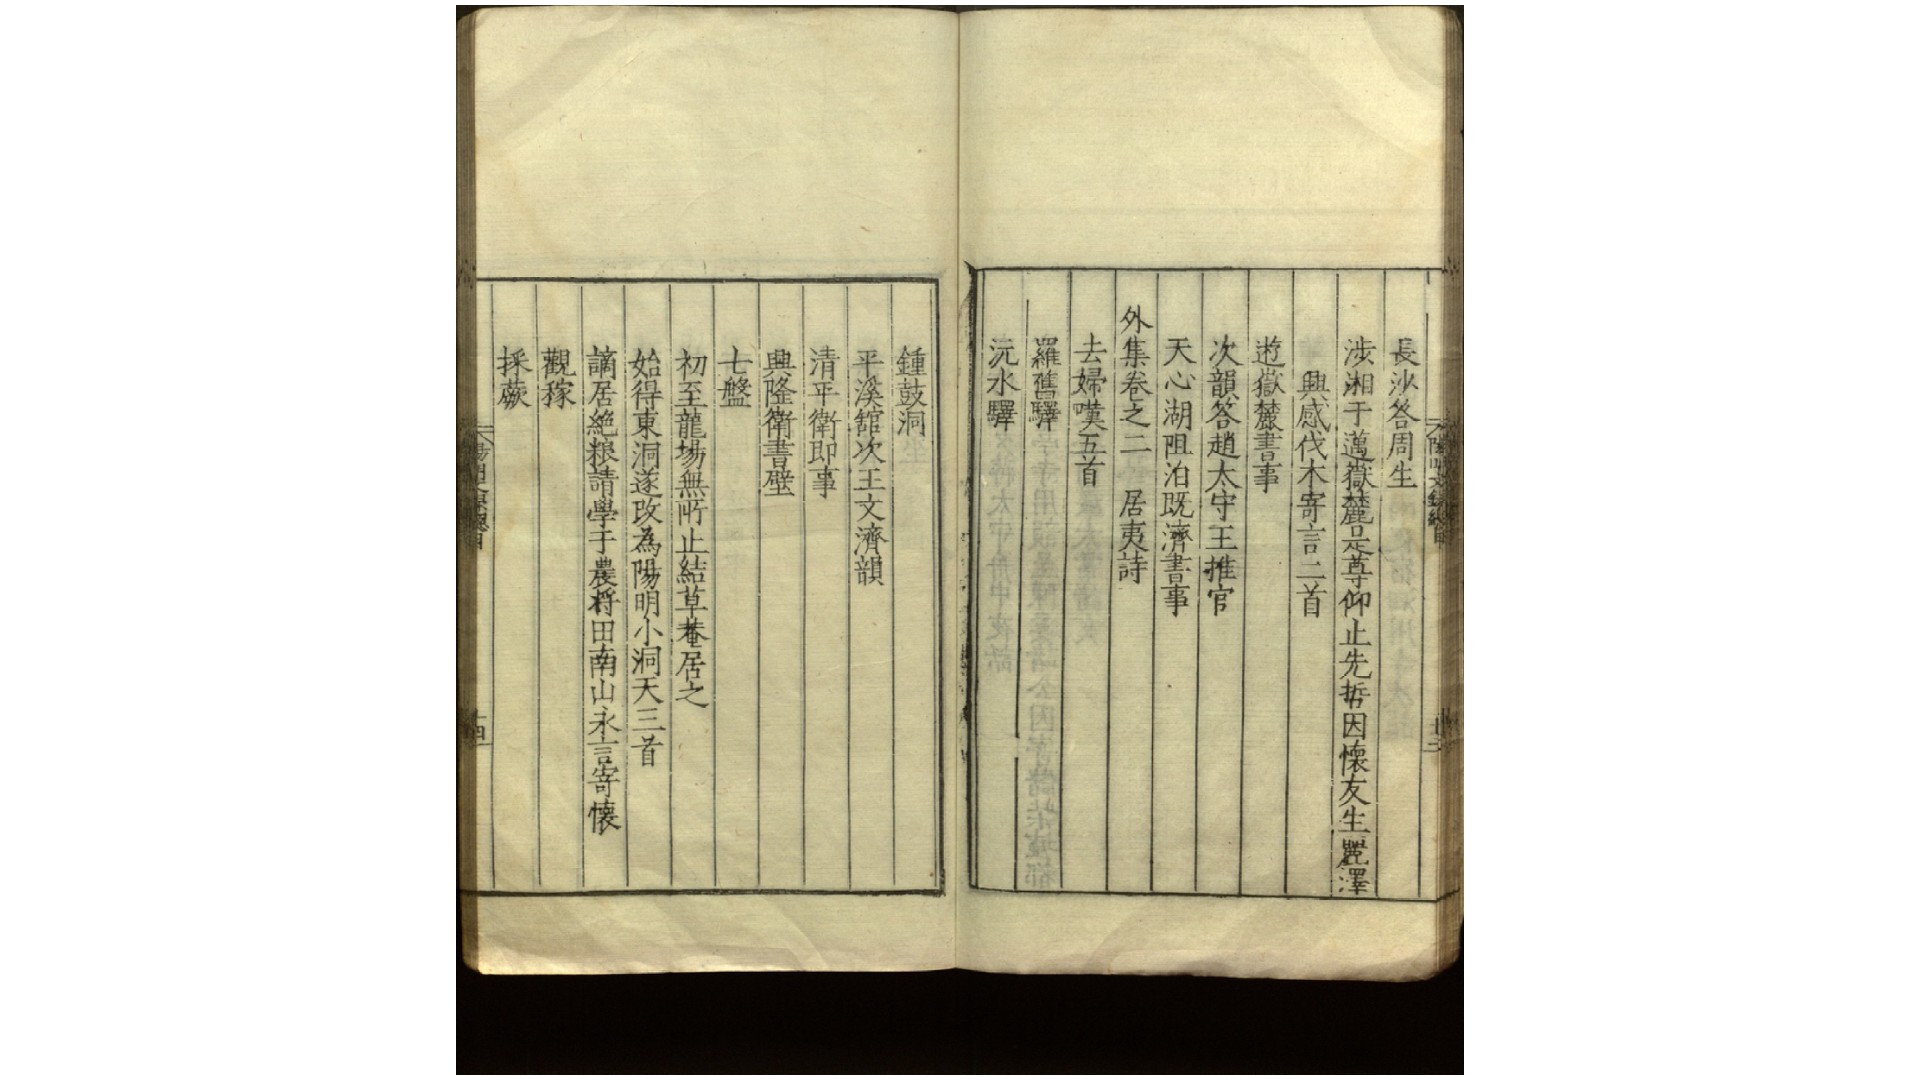 長沙答周生
涉湘于邁嶽麓是尊仰止先哲因懷友生麗澤
興感伐木寄言二首
遊嶽麓書事
次韻答趙太守王推官
天心湖阻泊既濟書事
外集卷之二　居夷詩
去婦嘆五首
羅舊驛
沅水驛
鍾鼓洞
平溪館次王文濟韻
清平衛即事
興隆衛書壁
七盤
初至龍場無所止結草菴居之
始得東洞遂改為陽明小洞天三首
謫居絶粮請學于農将田南山永言寄懷
觀稼
採蕨